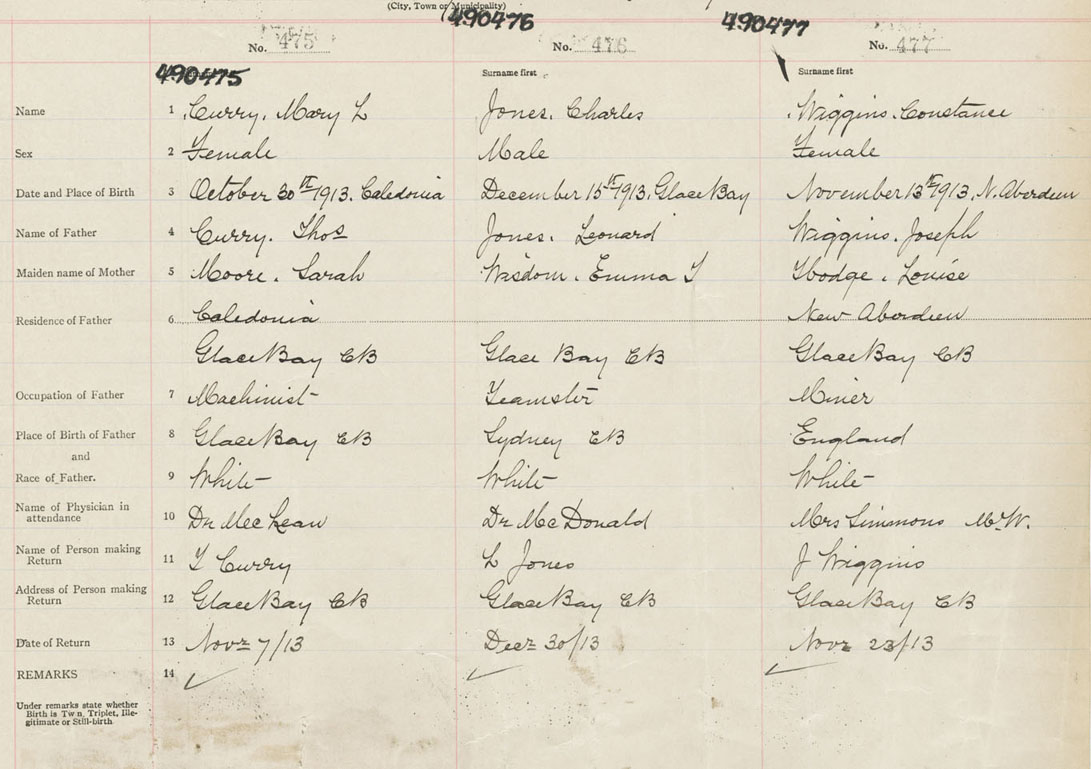 (City, Town or Municipality)
490476 490477
No. 475 No. 476 No. 477
490475 Surname first Surname first
Name 1 Curry, Mary L Jones, Charles Wiggins, Constance
Sex 2 Female Male Female
Date and Place of Birth 3 October 30th 1913, Caledonia December 15th 1913, Glace Bay November 13th 1913, N. Aberdeen
Name of Father 4 Curry, Thos Jones, Leonard Wiggins, Joseph
Maiden name of Mother 5 Moore, Sarah Wisdom, Emma J Hodge, Louise
Residence of Father 6 Caledonia New Aberdeen
Glace Bay CB Glace Bay CB Glace Bay CB
Occupation of Father 7 Machinist Teamster Miner
Place of Birth of Father 8 Glace Bay CB Sydney CB England
and
Race of Father. 9 White White White
Name of Physician in
attendance 10 Dr McLean Dr McDonald Mrs Simmons M.W.
Name of Person making
Return 11 T Curry L Jones J Wiggins
Address of Person making
Return 12 Glace Bay CB Glace Bay CB Glace Bay CB
Date of Return 13 Novr 7/13 Decr 30/13 Novr 23/13
REMARKS 14
Under remarks state whether
Birth is Twin, Triplet, Ille-
gitimate or Still-birth